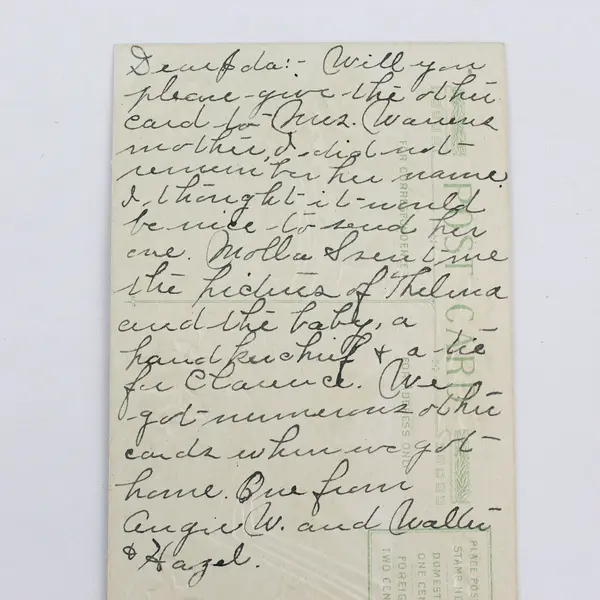 Dear Ida:- Will you
please give the other
card to Mrs. Warrens
mother, I did not
remember her name.
I, thought it would
be nice to send her
one. Molla S sent me
the pictures of Thelma
and the baby, a
handkerchief & a tie
for Clarence. We
got numerous other
cards when we got
home. One from
Angie W. and Walter
& Hazel.
POST CARD
FOR CORRESPONDENCE
FOR ADDRESS ONLY
PLACE POS
STAMP HE
DOMEST
ONE CEN
FOREIG
TWO CEN